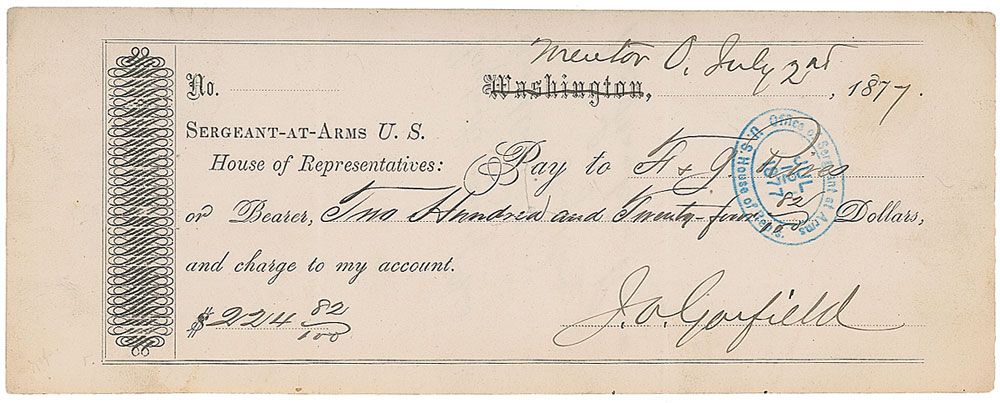 Mentor O. July 2nd
No. Washington, , 1877.
SERGEANT-AT-ARMS U. S.
House of Representatives: Pay to F & J. Bros
or Bearer, Two Hundred and Twenty-four 82/100 Dollars,
and charge to my account.
$ 224 82/100
J. A. Garfield
Office of Sergeant at Arms
U.S. House of Rep's.
JUL
1877